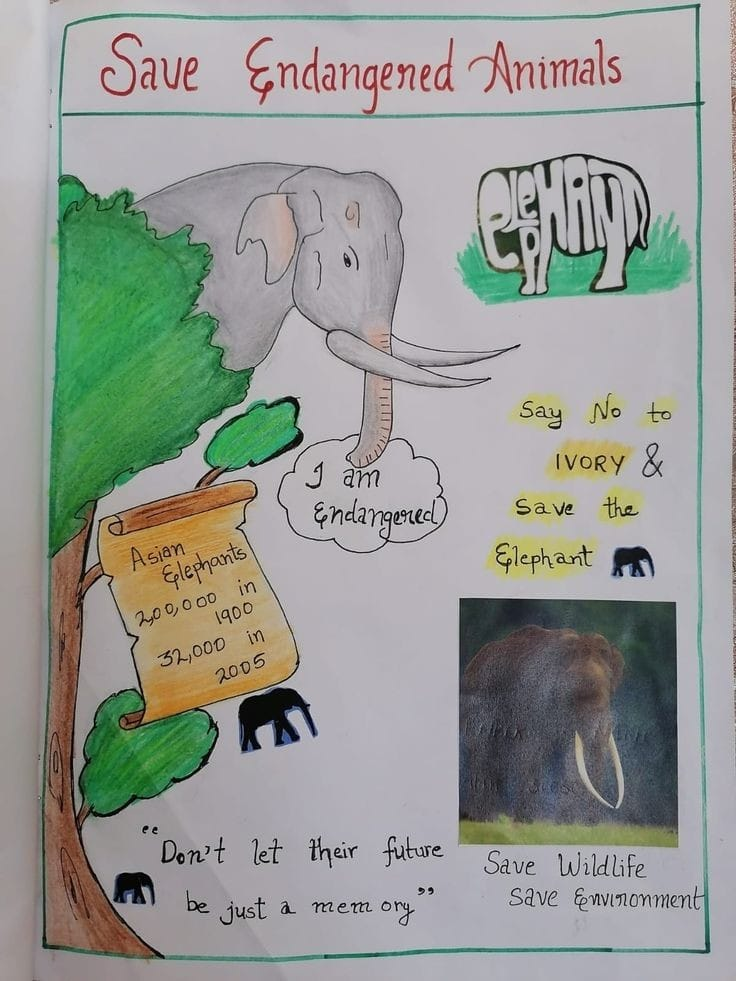 Save Endangered Animals
ELEPHANT
Say No to
IVORY &
Save the
Elephant
I am
Endangered
Asian
Elephants
2,00,000 in
1900
32,000 in
2005
"Don't let their future
be just a memory"
Save Wildlife
Save Environment